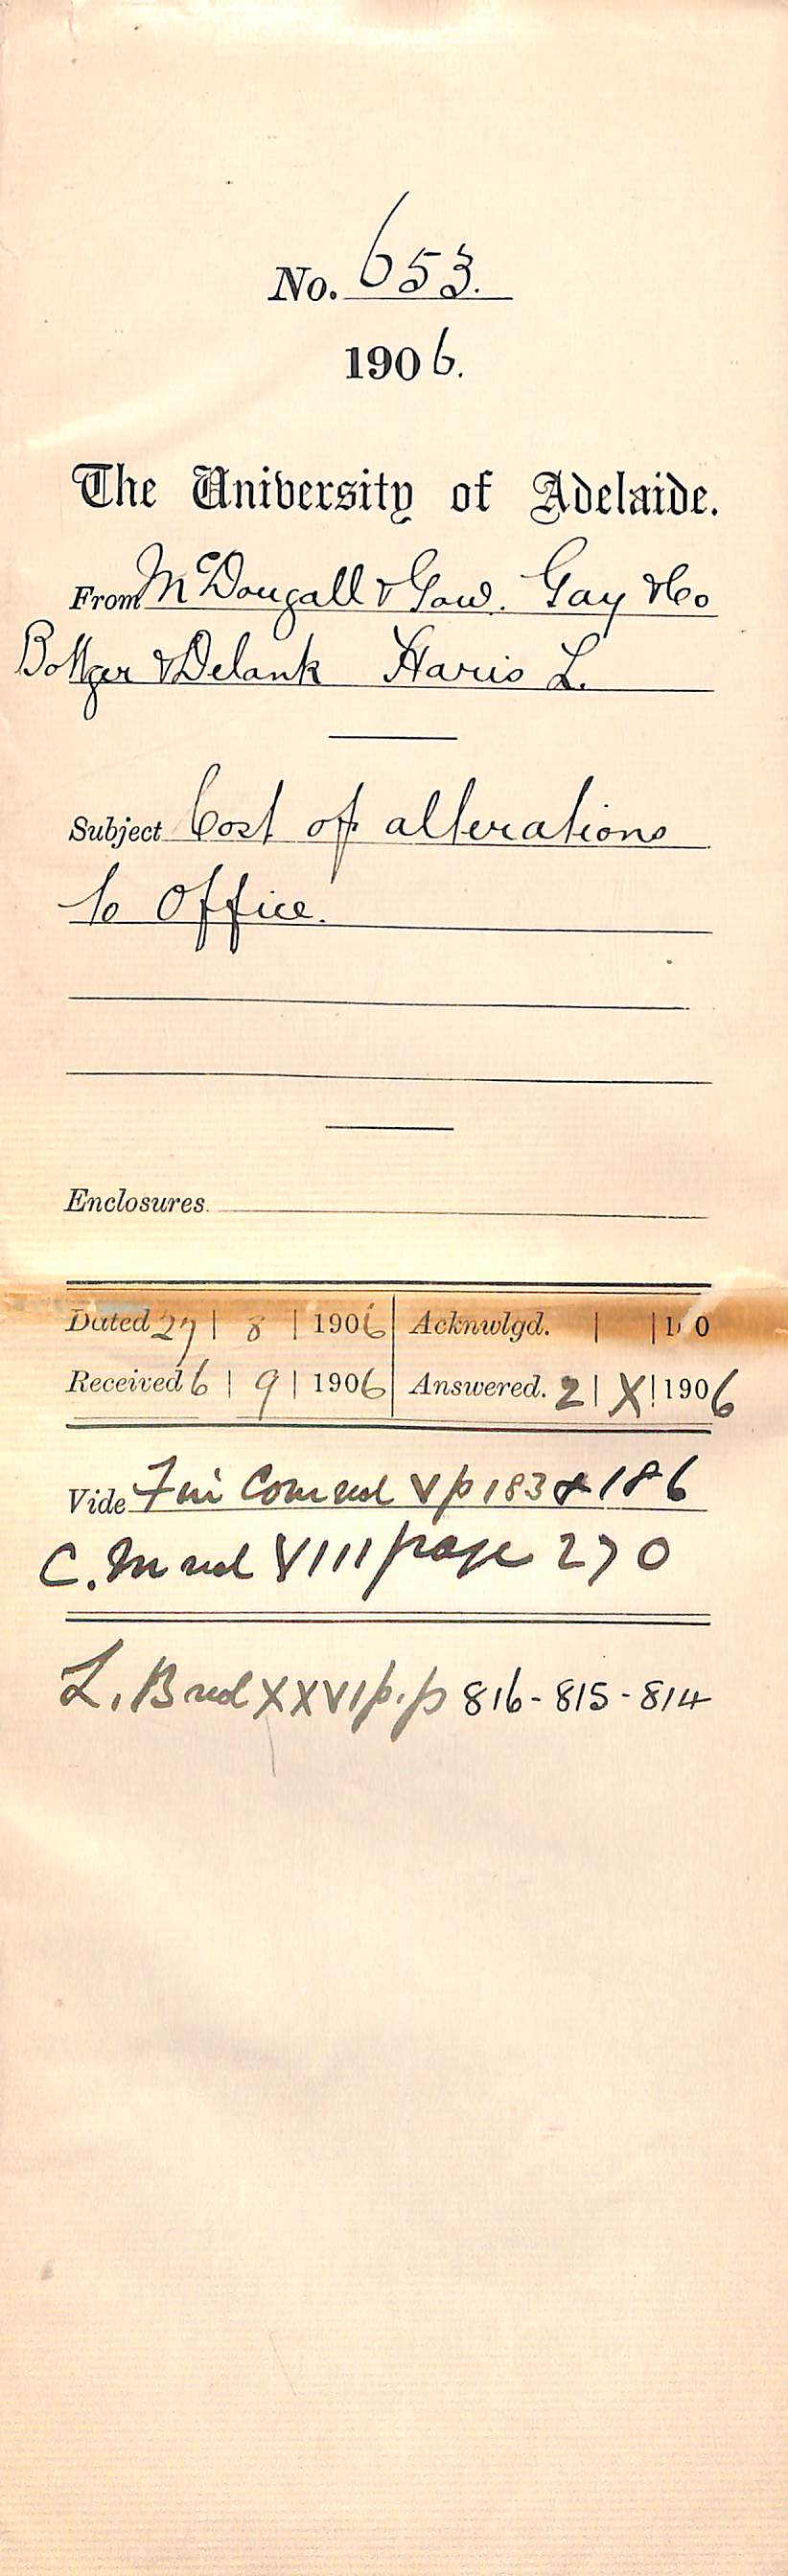 No. 653.
1906.
The University of Adelaide.
From McDougall & Gow. Gay & Co
Bottger & Delank Haris L.
Subject Cost of alterations
to Office.
Enclosures
Dated 27 | 8 | 1906 Acknwlgd. | | 190
Received 6 | 9 | 1906 Answered. 2 | X | 1906
Vide Fin Com vol V p 183 & 186
C.M vol VIII page 270
L.B vol XXVI p.p 816-815-814